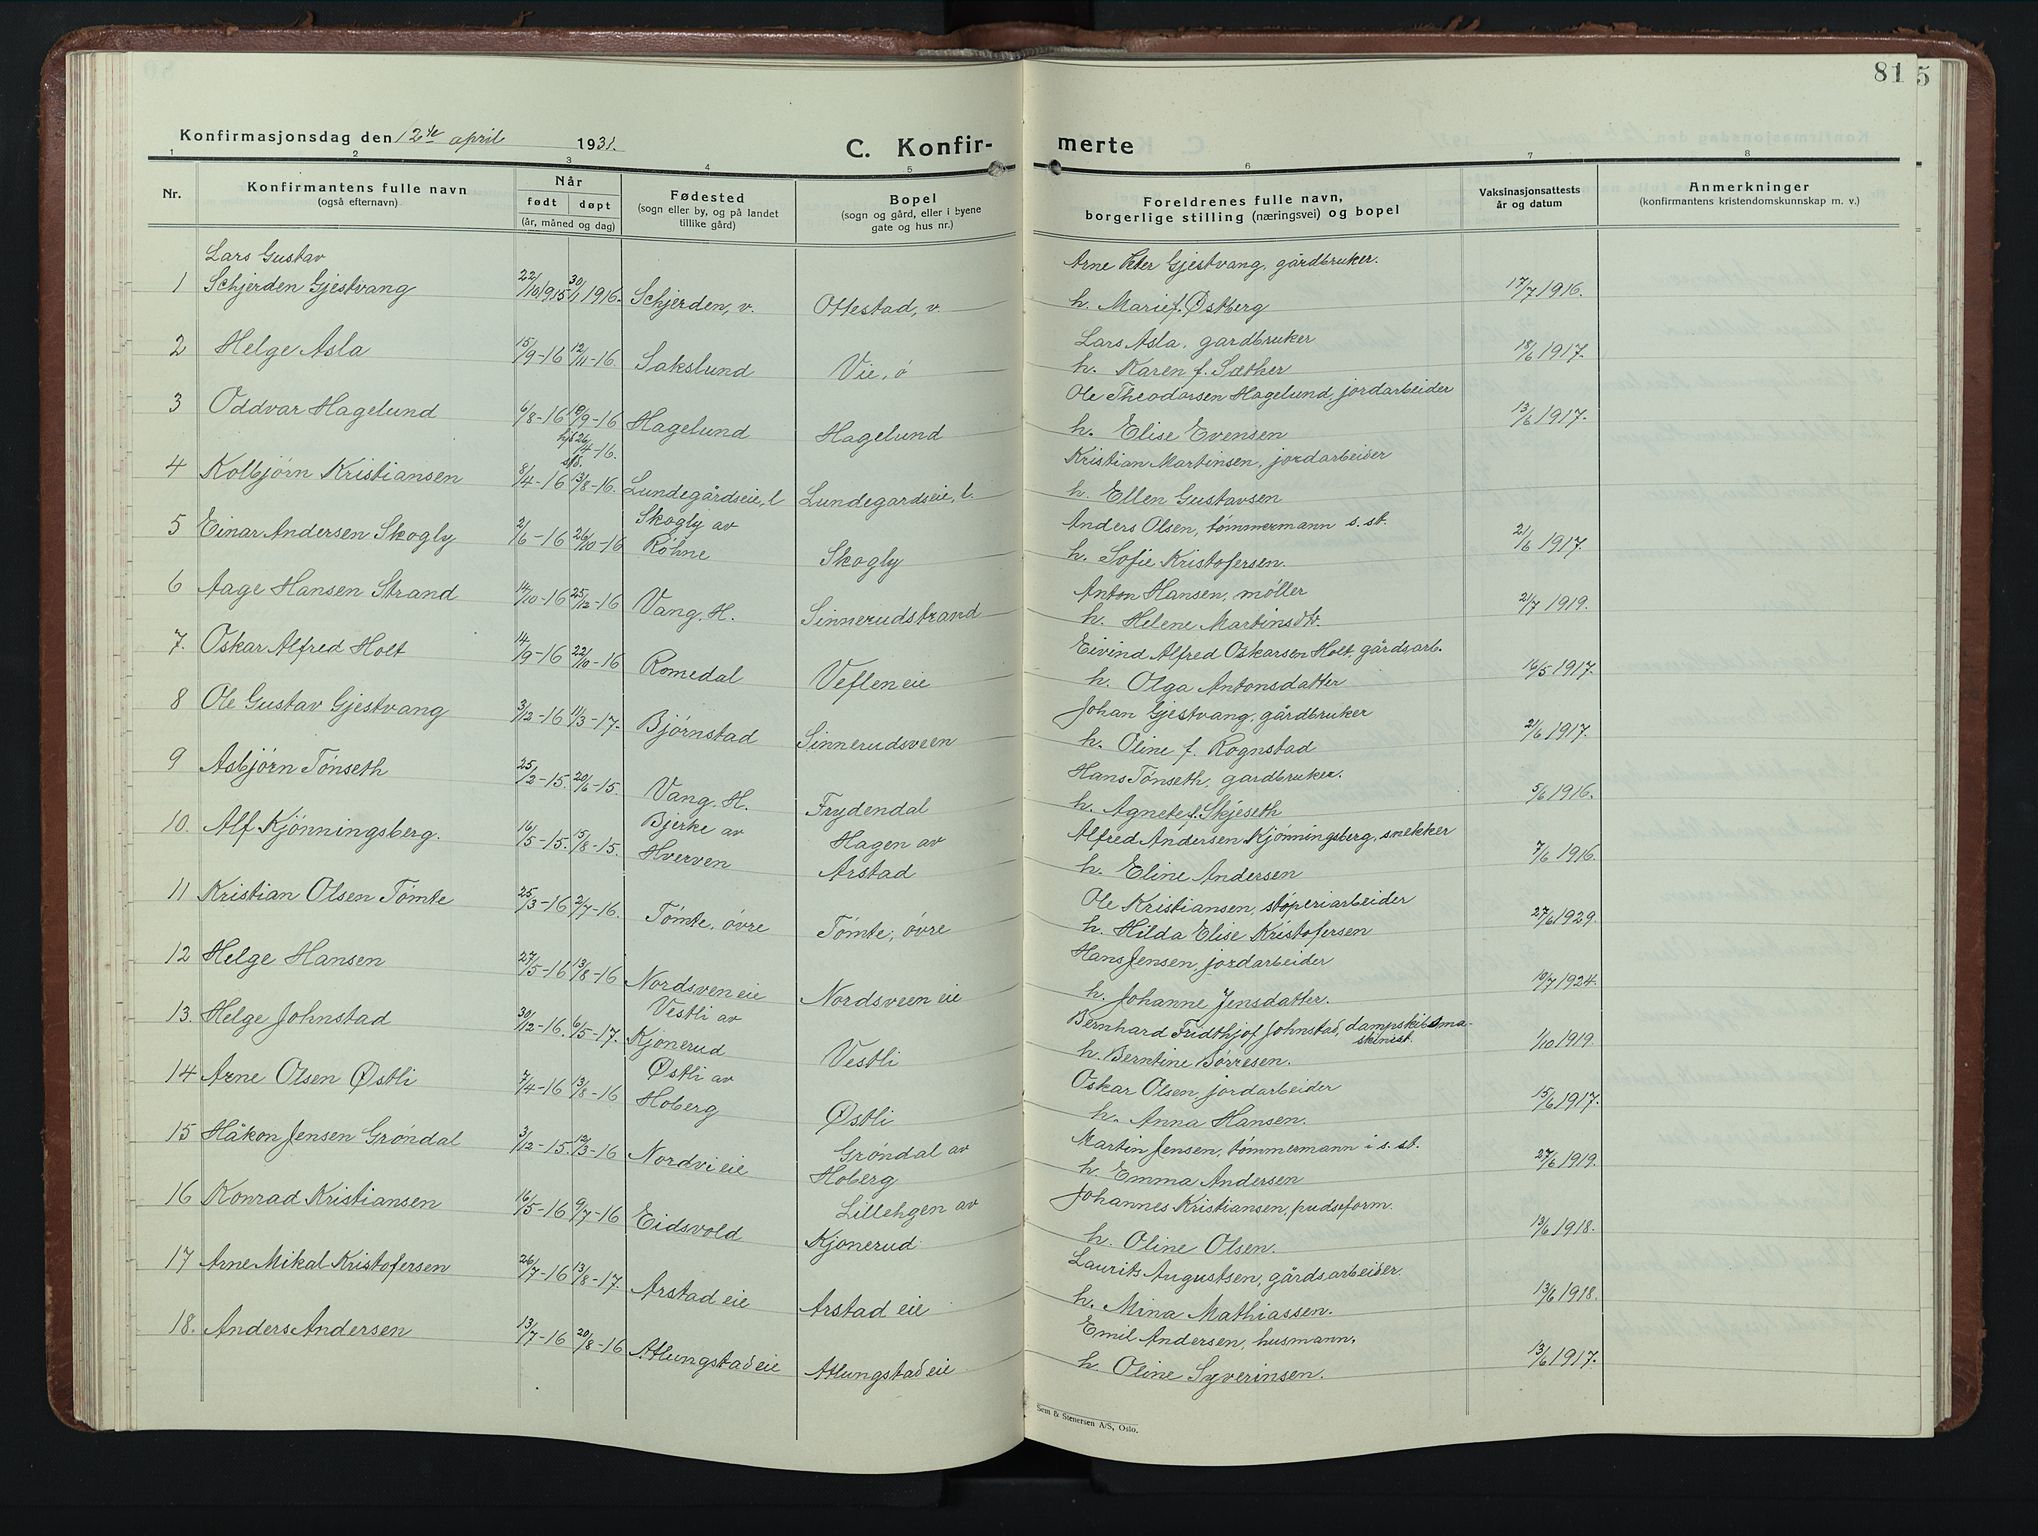 81
5
Konfirmasjonsdag den 12te april 1931.
C. Konfir-
merte
1 2 3 4 5 6 7 8
Nr.
Konfirmantens fulle navn
(også efternavn)
Når
født døpt
(år, måned og dag)
Fødested
(sogn eller by, og på landet
tillike gård)
Bopel
(sogn og gård, eller i byene
gate og hus nr.)
Foreldrenes fulle navn,
borgerlige stilling (næringsvei) og bopel
Vaksinasjonsattests
år og datum
Anmerkninger
(konfirmantens kristendomskunnskap m. v.)
Lars Gustav Arne Peter Gjestvang, gårdbruker.
1 Schjerden Gjestvang 22/10 1915 30/1 1916. Schjerden, v. Ottestad, v. h. Marie f. Østberg 17/7 1916.
2 Helge Asla 15/9-16 12/11-16. Sakslund Vie, ø Lars Asla, gardbruker 18/6 1917.
h. Karen f. Sæther
3 Oddvar Hagelund 6/8-16 10/9-16 Hagelund Hagelund Ole Theodorsen Hagelund, jordarbeider 13/6 1917.
h. Elise Evensen
hjd 26/4-16.
stf.
4 Kolbjørn Kristiansen 8/4-16 13/8-16. Lundegårdseie, l Lundegardseie, l. Kristian Martinsen, jordarbeider
h. Ellen Gustavsen
5 Einar Andersen Skogly 2/6-16 26/10-16 Skogly av Anders Olsen, tømmermann s. st. 21/6 1917.
Røhne Skogly h. Sofie Kristofersen.
6 Aage Hansen Strand 14/10-16 25/12-16 Vang, H. Sinnerudstrand Anton Hansen, møller 2/7 1919.
h. Helene Martinsdtr.
7. Oskar Alfred Holt 14/9-16 22/10-16 Romedal Vefleneie Eivind Alfred Oskarsen Holt, gårdsarb. 16/5 1917.
h. Olga Antonsdatter
8 Ole Gustav Gjestvang 3/12-16 11/3-17. Bjørnstad Sinnerudsveen Johan Gjestvang, gårdbruker 21/6 1917.
h. Oline f. Rognstad
9 Asbjørn Tønseth 25/2-15. 20/6-15. Vang, H. Frydendal Hans Tønseth, gardbruker. 5/6 1916.
h. Agnete f. Skjeseth
10. Alf Kjønningsberg. 16/5-15. 15/8-15. Bjerke av Hagen av Alfred Andersen Kjønningsberg, snekker 7/6 1916.
Hverven Arstad h. Eline Andersen
11 Kristian Olsen Tømte 25/3-16 2/7-16. Tømte, øvre Tømte, øvre Ole Kristiansen, støperiarbeider 27/6 1929.
h. Hilda Elise Kristofersen
12 Helge Hansen 27/5-16 13/8-16 Nordsven eie Nordsveen eie Hans Jensen, jordarbeider 10/7 1924.
h. Johanne Jensdatter.
13. Helge Johnstad 30/12-16. 6/5-17. Vestli av Bernhard Fridthjof Johnstad, dampskibsma-
skinist. 1/10 1919.
Kjonerud Vestli h. Berntine Børresen.
14 Arne Olsen Østli 7/4-16 13/8-16 Østli av Oskar Olsen, jordarbeider 15/6 1917.
Hoberg Østli h. Anna Hansen.
15 Håkon Jensen Grøndal 3/12-15. 12/3-16 Nordvi eie Grøndal av Martin Jensen, tømmermann i s. st. 27/6 1919.
Hoberg h. Emma Andersen
16 Konrad Kristiansen 16/5-16 9/7-16 Eidsvold Lillehgen av Johannes Kristiansen, pudseform. 13/6 1918.
Kjonerud h. Oline Olsen.
17 Arne Mikal Kristofersen 26/7-16 13/8-17. Arstad eie Arstad eie Laurits Augustsen, gårdsarbeider. 13/6 1918.
h. Mina Mathiassen.
18. Anders Andersen 13/7-16 20/8-16 Atlungstad eie Atlungstad eie Emil Andersen, husmann. 13/6 1917.
h. Oline Syverinsen.
Sem & Stenersen A/S, Oslo.